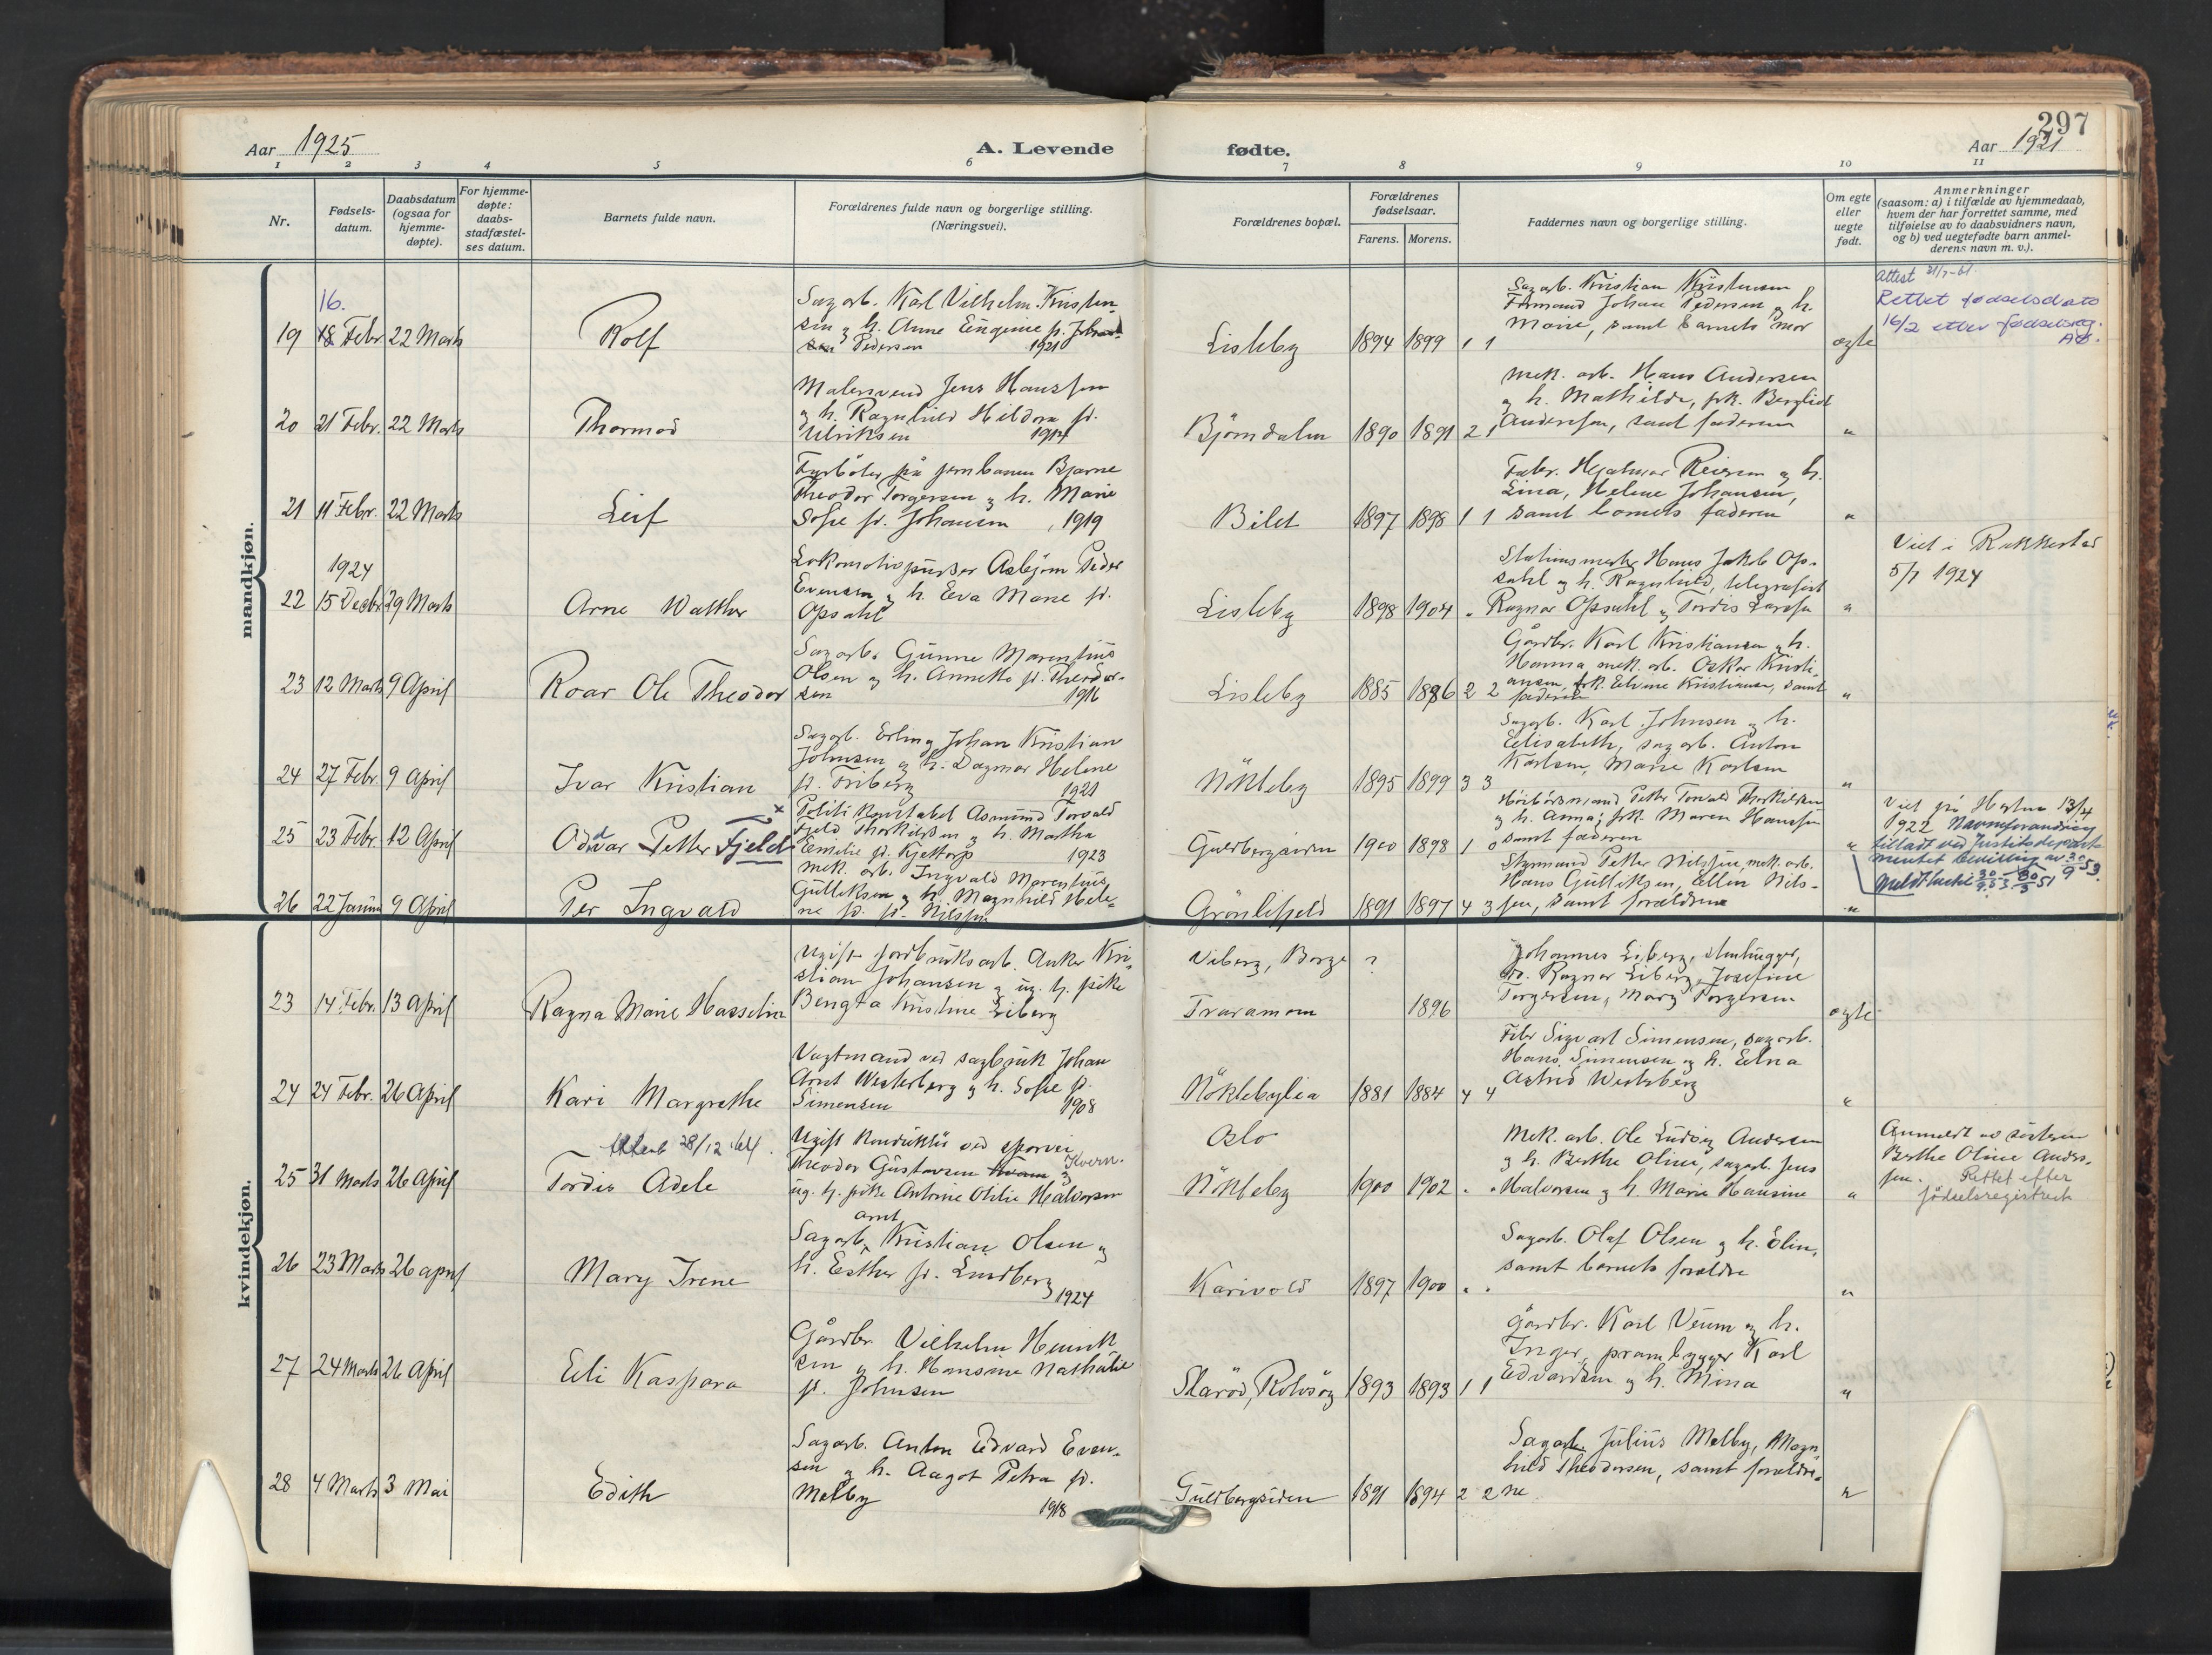 297
Aar 1925
A. Levende
fødte.
Aar 1921
1 2 3 4 5 6 7 8 9 10 11
Nr.
Fødsels-
datum.
Daabsdatum
(ogsaa for
hjemme-
døpte).
For hjemme-
døpte:
daabs-
stadfæstel-
ses datum.
Barnets fulde navn.
Forældrenes fulde navn og borgerlige stilling.
(Næringsvei).
Forældrenes bopæl.
Forældrenes
fødselsaar.
Farens. Morens.
Faddernes navn og borgerlige stilling.
Om egte
eller
uegte
født.
Anmerkninger
(saasom: a) i tilfælde av hjemmedaab,
hvem der har forrettet samme, med
tilføielse av to daabsvidners navn,
og b) ved uegtefødte barn anmel-
derens navn m. v.).
mandkjøn.
16.
19 18 Febr. 22 Marts
Rolf
Sagarb. Karl Vilhelm Kristen-
sen og h. Anne Eugenie f.
Pedersen 1921
Lisleby 1894 1899 1 1
Sagarb. Kristian Kristensen
Formand Johan Pedersen og h.
Marie, samt barnets mor
ægte
Attest 31/7-61.
Rettet fødselsdato
16/2 etter fødselsreg.
20 21 Febr. 22 Marts
Thormod
Malersvend Jens Hanssen
og h. Ragnhild Hildora f.
Ulriksen 1914
Björndalen 1890 1891 2 1
Mek. arb. Hans Andersen
og h. Mathilde, frk. Bergliot
Anderssen, samt faderen
"
21 11 Febr. 22 Marts
Leif
Fyrböter på jernbanen Bjarne
Theodor Torgersen og h. Marie
Sofie f. Johansen 1919
Bilet 1897 1898 1 1
Fabr. Hjalmar Reiersen og h.
Lina, Helene Johansen,
samt barnets faderen
"
1924
22 15 Decbr 29 Marts
Arne Walther
Lokomotivpusser Asbjørn Peder
Evensen og h. Eva Marie f.
Opsahl
Lisleby 1898 1904 "
Stationsmester Hans Jakob Op-
sahl og h. Ragnhild, telegrafist
Ragnar Opsahl og Tordis
"
Viet i Rakkestad
5/7 1924
23 12 Marts 9 April
Roar Ole Theodor
Sagarb. Gunne Marentius
Olsen og h. Annette f. Theodor-
sen 1916
Lisleby 1885 1886 2 2
Gårdbr. Karl Kristiansen og h.
Hanna, mek. arb. Oskar Kristi-
ansen, frk. Elvine Kristiansen, samt
faderen
"
24 27 Febr. 9 April
Ivar Kristian
Sagarb. Erling Johan Kristian
Johnsen og h. Dagmar Helene
f. Friberg 1921
Nökleby 1895 1899 3 3
Sagarb. Karl Johnsen og h.
Elisabeth, sagarb. Anton
Karlsen, Marie Karlsen
"
25 23 Febr. 12 April
Oddvar Petter Fjeld
Politikonstabel Asmund Torvald
Fjeld Thorkildsen og h. Martha
Emelie f. Kjettorp 1923
Guldbergsiden 1900 1898 1 0
Petter Torvald Thorkildsen
og h. Anna, frk. Maren Hansen
samt faderen
"
Viet på 13/4
1922 Navneforandring
tilladt ved Justitsdeparte-
mentet bevilling av 30/9 53.
26 22 Januar 9 April
Per Ingvald
Mek. arb. Ingvald Marentius
Gulliksen og h. Magnhild Hele-
ne f. Nilssen
Grönlifjeld 1891 1897 4 3
Styrmand Petter Nilssen, mek. arb.
Hans Gulliksen, Ellen Nils-
sen, samt forældrene
"
kvindekjøn.
23 14 Febr. 13 April
Ragna Marie Hasselin
Ugift jordbruksarb. Anker Kri-
stian Johansen og ug. tj. pike
Bengta Kristine Liberg
Viberg, Borge ?
Traramoen 1896
Johannes Liberg, stenhugger,
Ragnar Liberg, Josefine
Torgersen, Mary Torgersen
ægte
24 24 Febr. 26 April
Kari Margrethe
Vagtmand ved sagbruk Johan
Arnt Westerberg og h. Sofie f.
Simensen 1908
Nöklebylia 1881 1884 4 4
Fabr Sigvart Simensen, sagarb.
Hans Simensen og h. Edna
Astrid Westerberg
"
Attest 28/12 64.
25 31 Marts 26 April
Tordis Adele
Ugift konduktör ved sporvei
Theodor Gustavsen Kvern. og
ug. tj. pike Antonie Otilie Halvorsen
Oslo
Nökleby 1900 1902 " "
Mek. arb. Ole Ludvig Andersen
og h. Berthe Oline, sagarb. Jens
Halvorsen og h. Marie Hansine
"
Anmeldt av søsteren
Berthe Oline Anders-
sen. Rettet efter
fødselsregistret
26 23 Marts 26 april
Mary Irene
Arnt
Sagarb. Kristian Olsen og
h. Esther f. Lundberg
1924
Karivold 1897 1900 " "
Sagarb. Olaf Olsen og h. Elin,
samt barnets forældre
"
27 24 Marts 26 April
Eli Kaspara
Gårdbr. Vilhelm Henrik
sen og h. Hansine Nathalie
f. Johnsen
Skaröd, Rolvsöy 1893 1893 1 1
Gårdbr. Karl Veum og h.
Inger, prambygger Karl
Edvardsen og h. Mina
"
28 4 Marts 3 Mai
Edith
Sagarb. Anton Edvard Even-
sen og h. Aagot Petra f.
Melby 1918
Guldbergsiden 1891 1894 2 2
Sagarb. Julius Melby, Magn
hild Theodorsen, samt forældre-
ne
"